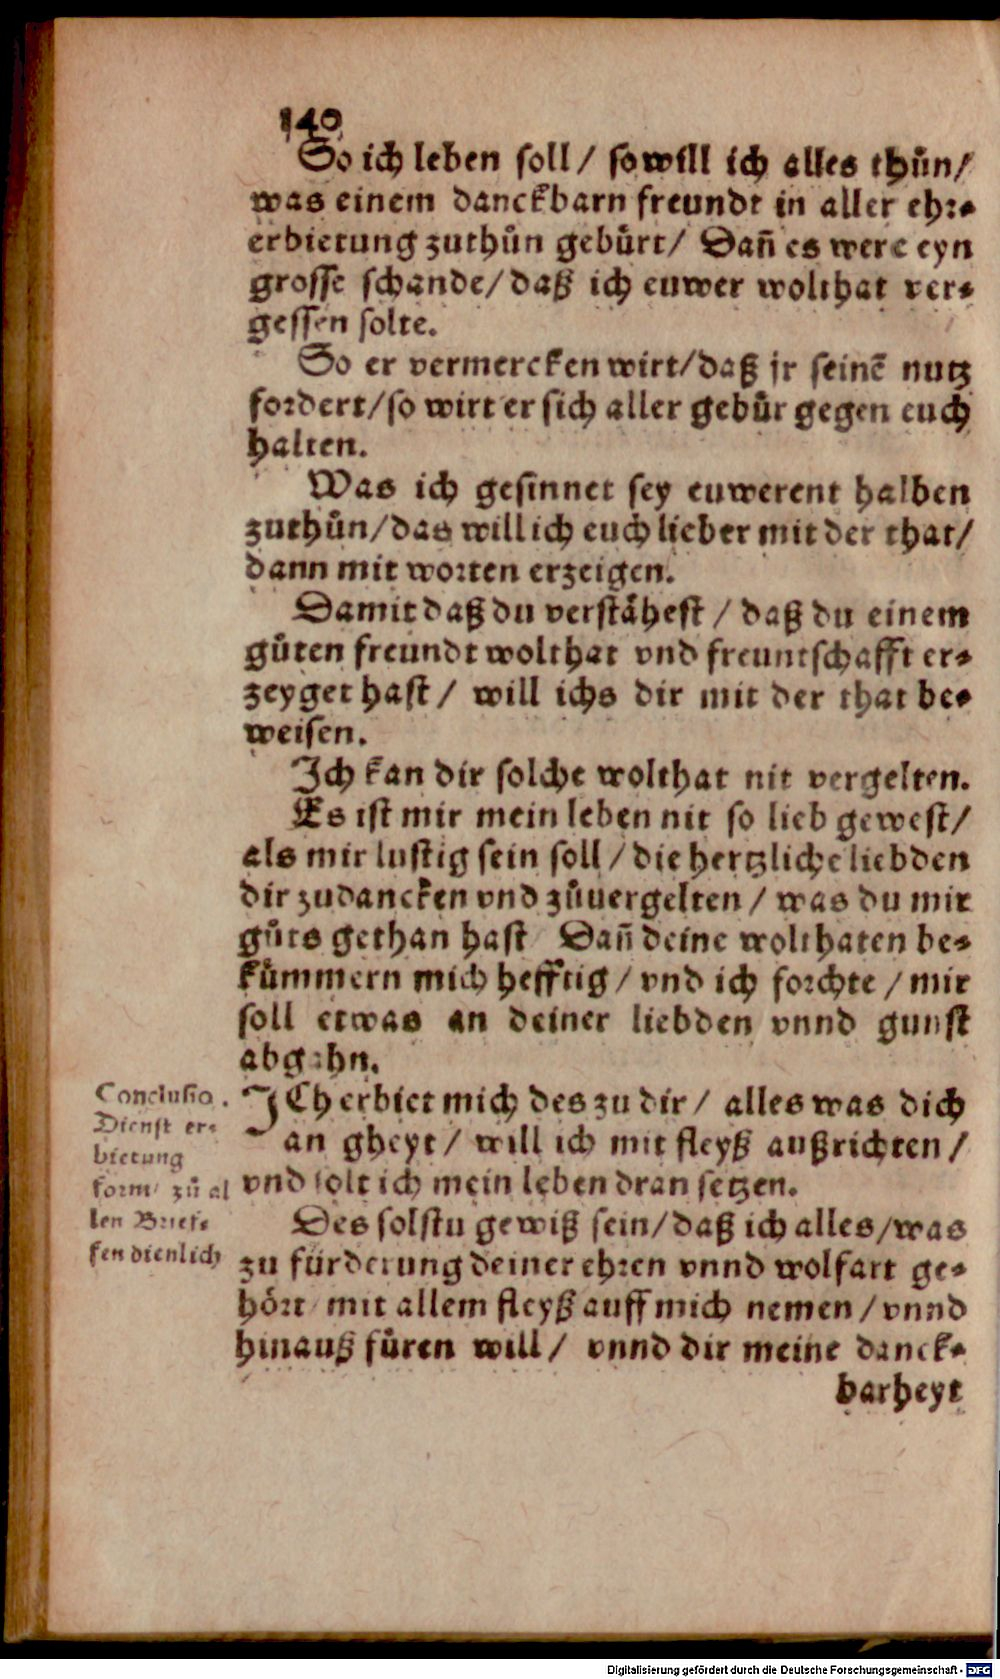 140
So ich leben soll / so will ich alles thůn /
was einem danckbarn freundt in aller ehr⸗
erbietung zuthůn gebürt / Dañ es were eyn
grosse schande / daß ich euwer wolthat ver⸗
gessen solte.
So er vermercken wirt / daß jr seinē nutz
fordert / so wirt er sich aller gebür gegen euch
halten.
Was ich gesinnet sey euwerent halben
zuthůn / das will ich euch lieber mit der that /
dann mit worten erzeigen.
Damit daß du verstähest / daß du einem
gůten freundt wolthat vnd freuntschafft er⸗
zeyget hast / will ichs dir mit der that be⸗
weisen.
Ich kan dir solche wolthat nit vergelten.
Es ist mir mein leben nit so lieb gewest /
als mir lustig sein soll / die hertzliche liebden
dir zudancken vnd zůuergelten / was du mir
gůts gethan hast Dañ deine wolthaten be⸗
kümmern mich hefftig / vnd ich forchte / mir
soll etwas an deiner liebden vnnd gunst
abgehn.
Conclusio.
Dienst er⸗
bietung
form / zů al
len Brief⸗
fen dienlich
ICh erbiet mich des zu dir / alles was dich
an gheyt / will ich mit fleyß außrichten /
vnd solt ich mein leben dran setzen.
Des solstu gewiß sein / daß ich alles / was
zu fürderung deiner ehren vnnd wolfart ge⸗
hört / mit allem fleyß auff mich nemen / vnnd
hinauß füren will / vnnd dir meine danck⸗
barheyt
Digitalisierung gefördert durch die Deutsche Forschungsgemeinschaft - DFG